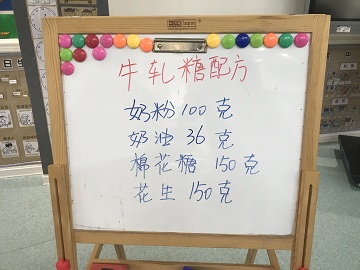 牛轧糖配方
奶粉 100 克
奶油 36 克
棉花糖 150 克
花生 150 克